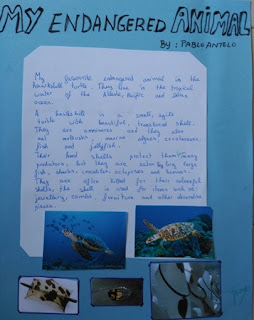 MY ENDANGERED ANIMAL
By: PABLO ANTELO
My favourite endangered animal is the
hawksbill turtle. They live in the tropical
water of the Atlantic, Pacific and Indian
ocean.
A hawksbill is a small, agile
turtle with beautiful, translucent shell.
They are omnivores and they also
eat molluscs, marine algaes, crustaceans
fish and jellyfish.
Their hard shells protect them from
predators, but they are eaten by big large
fish, sharks, crocodiles, octopuses and humans.
They are often killed for their colourful
shells, the shell is used to items such as:
jewellery, combs, furniture and other decorative
pieces.